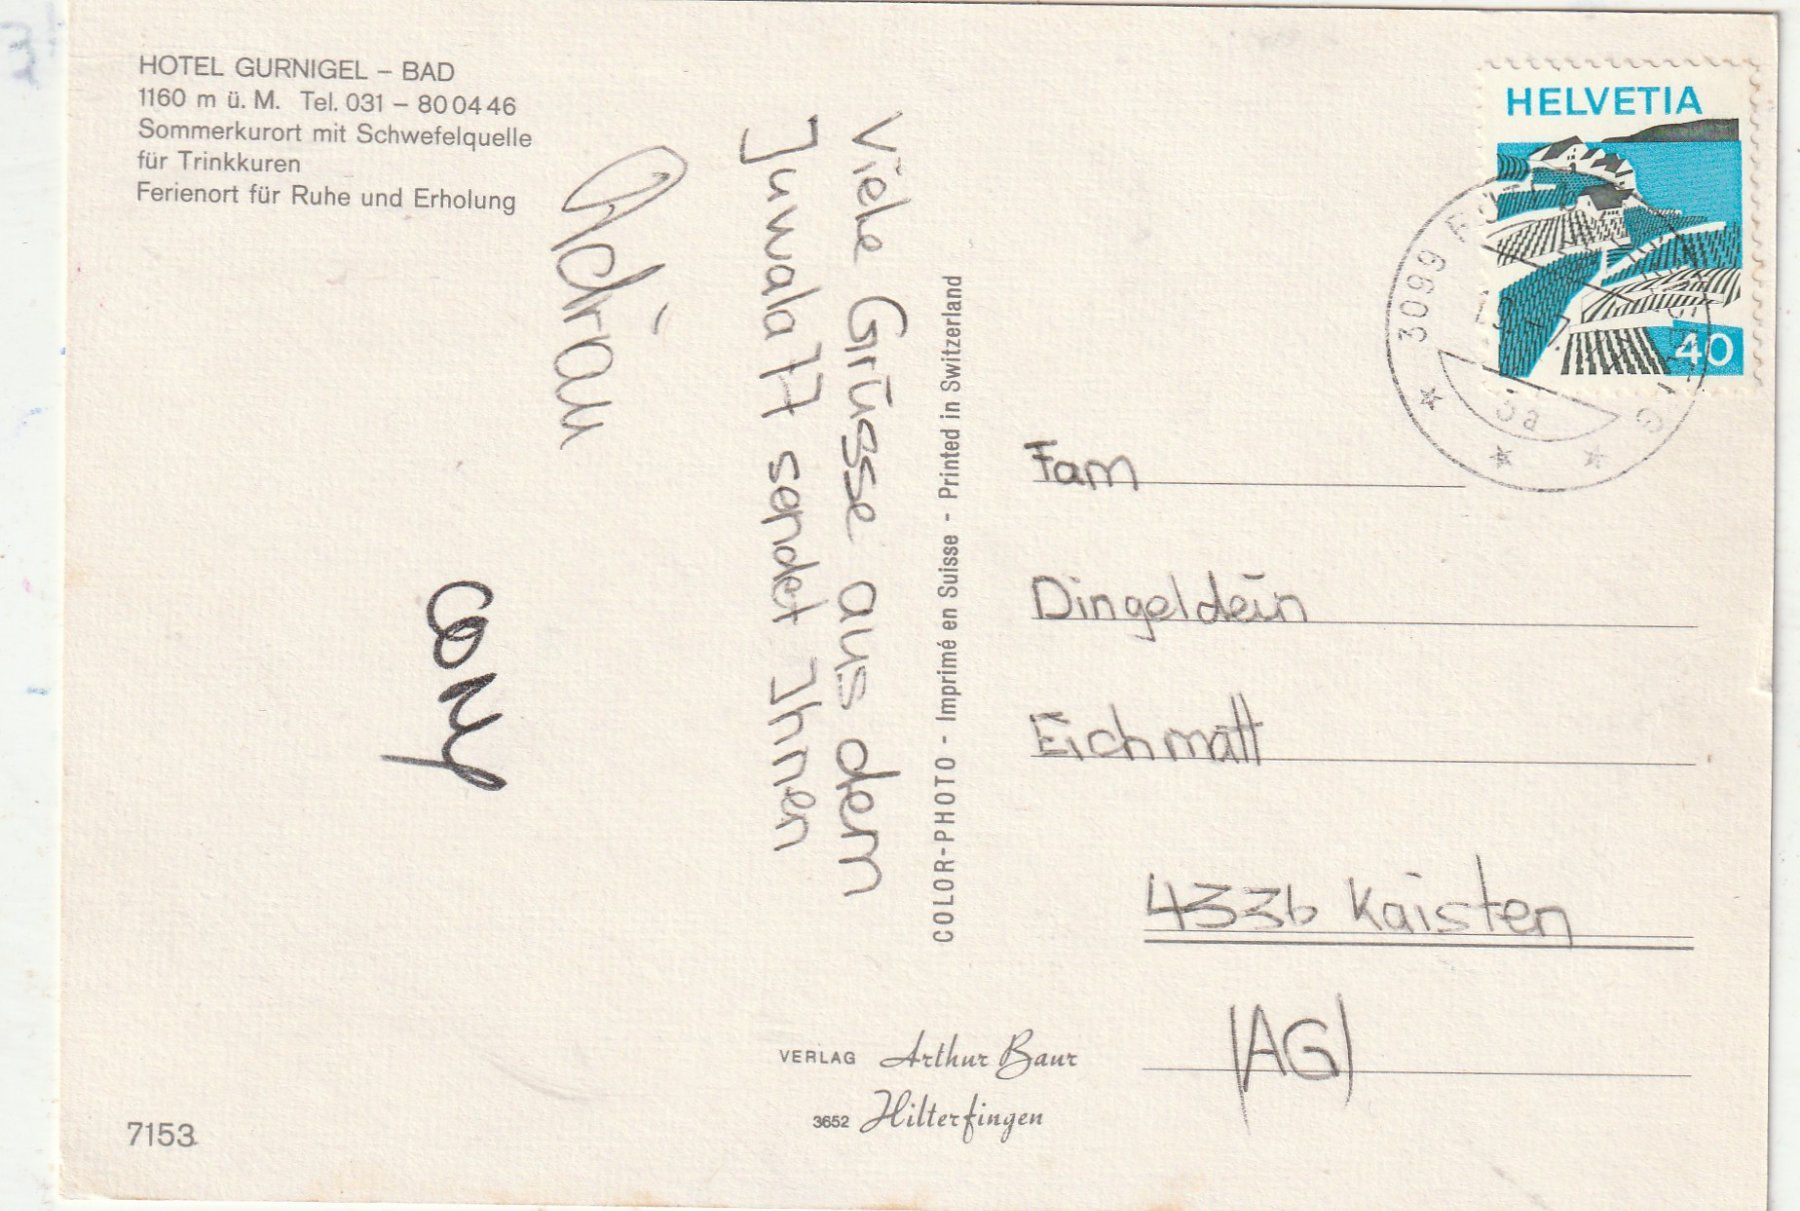 HOTEL GURNIGEL – BAD
1160 m ü. M. Tel. 031 – 80 04 46
Sommerkurort mit Schwefelquelle
für Trinkkuren
Ferienort für Ruhe und Erholung
Viele Grüsse aus dem
Juwala 77 sendet Ihnen
Adrian
Cony
COLOR-PHOTO - Imprimé en Suisse - Printed in Switzerland
HELVETIA
40
3099
Fam
Dingeldein
Eichmatt
4336 Kaisten
(AG)
VERLAG Arthur Baur
3652 Hilterfingen
7153